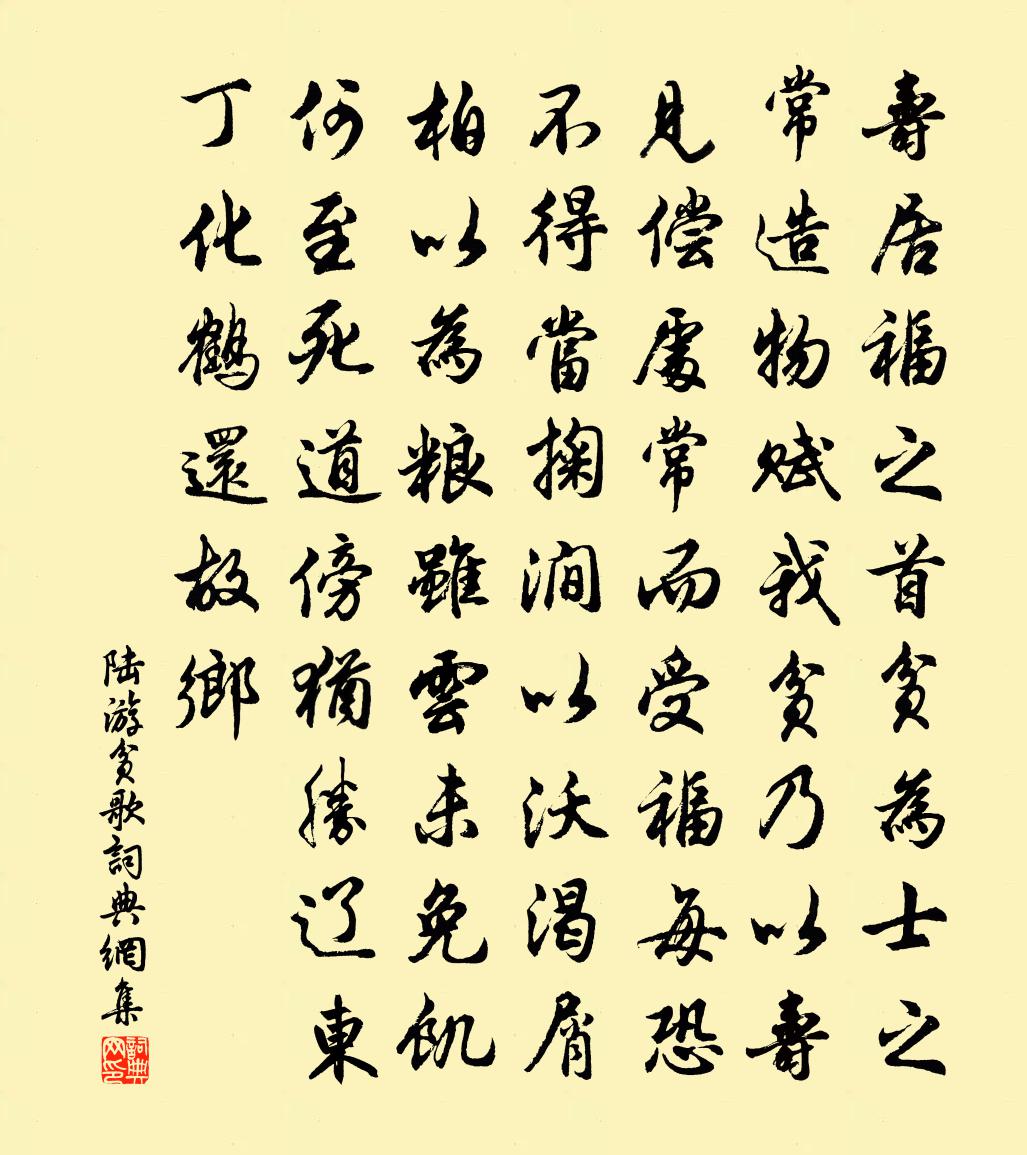 壽居福之首貧為士之
常造物賦我貧乃以壽
見偿處常而受福每恐
不得當掬澗以沃渴屑
柏以為粮雖雲未免飢
何至死道傍猶勝辽東
丁化鶴還故鄉
陆游貧歌詞典網集
詞典网印